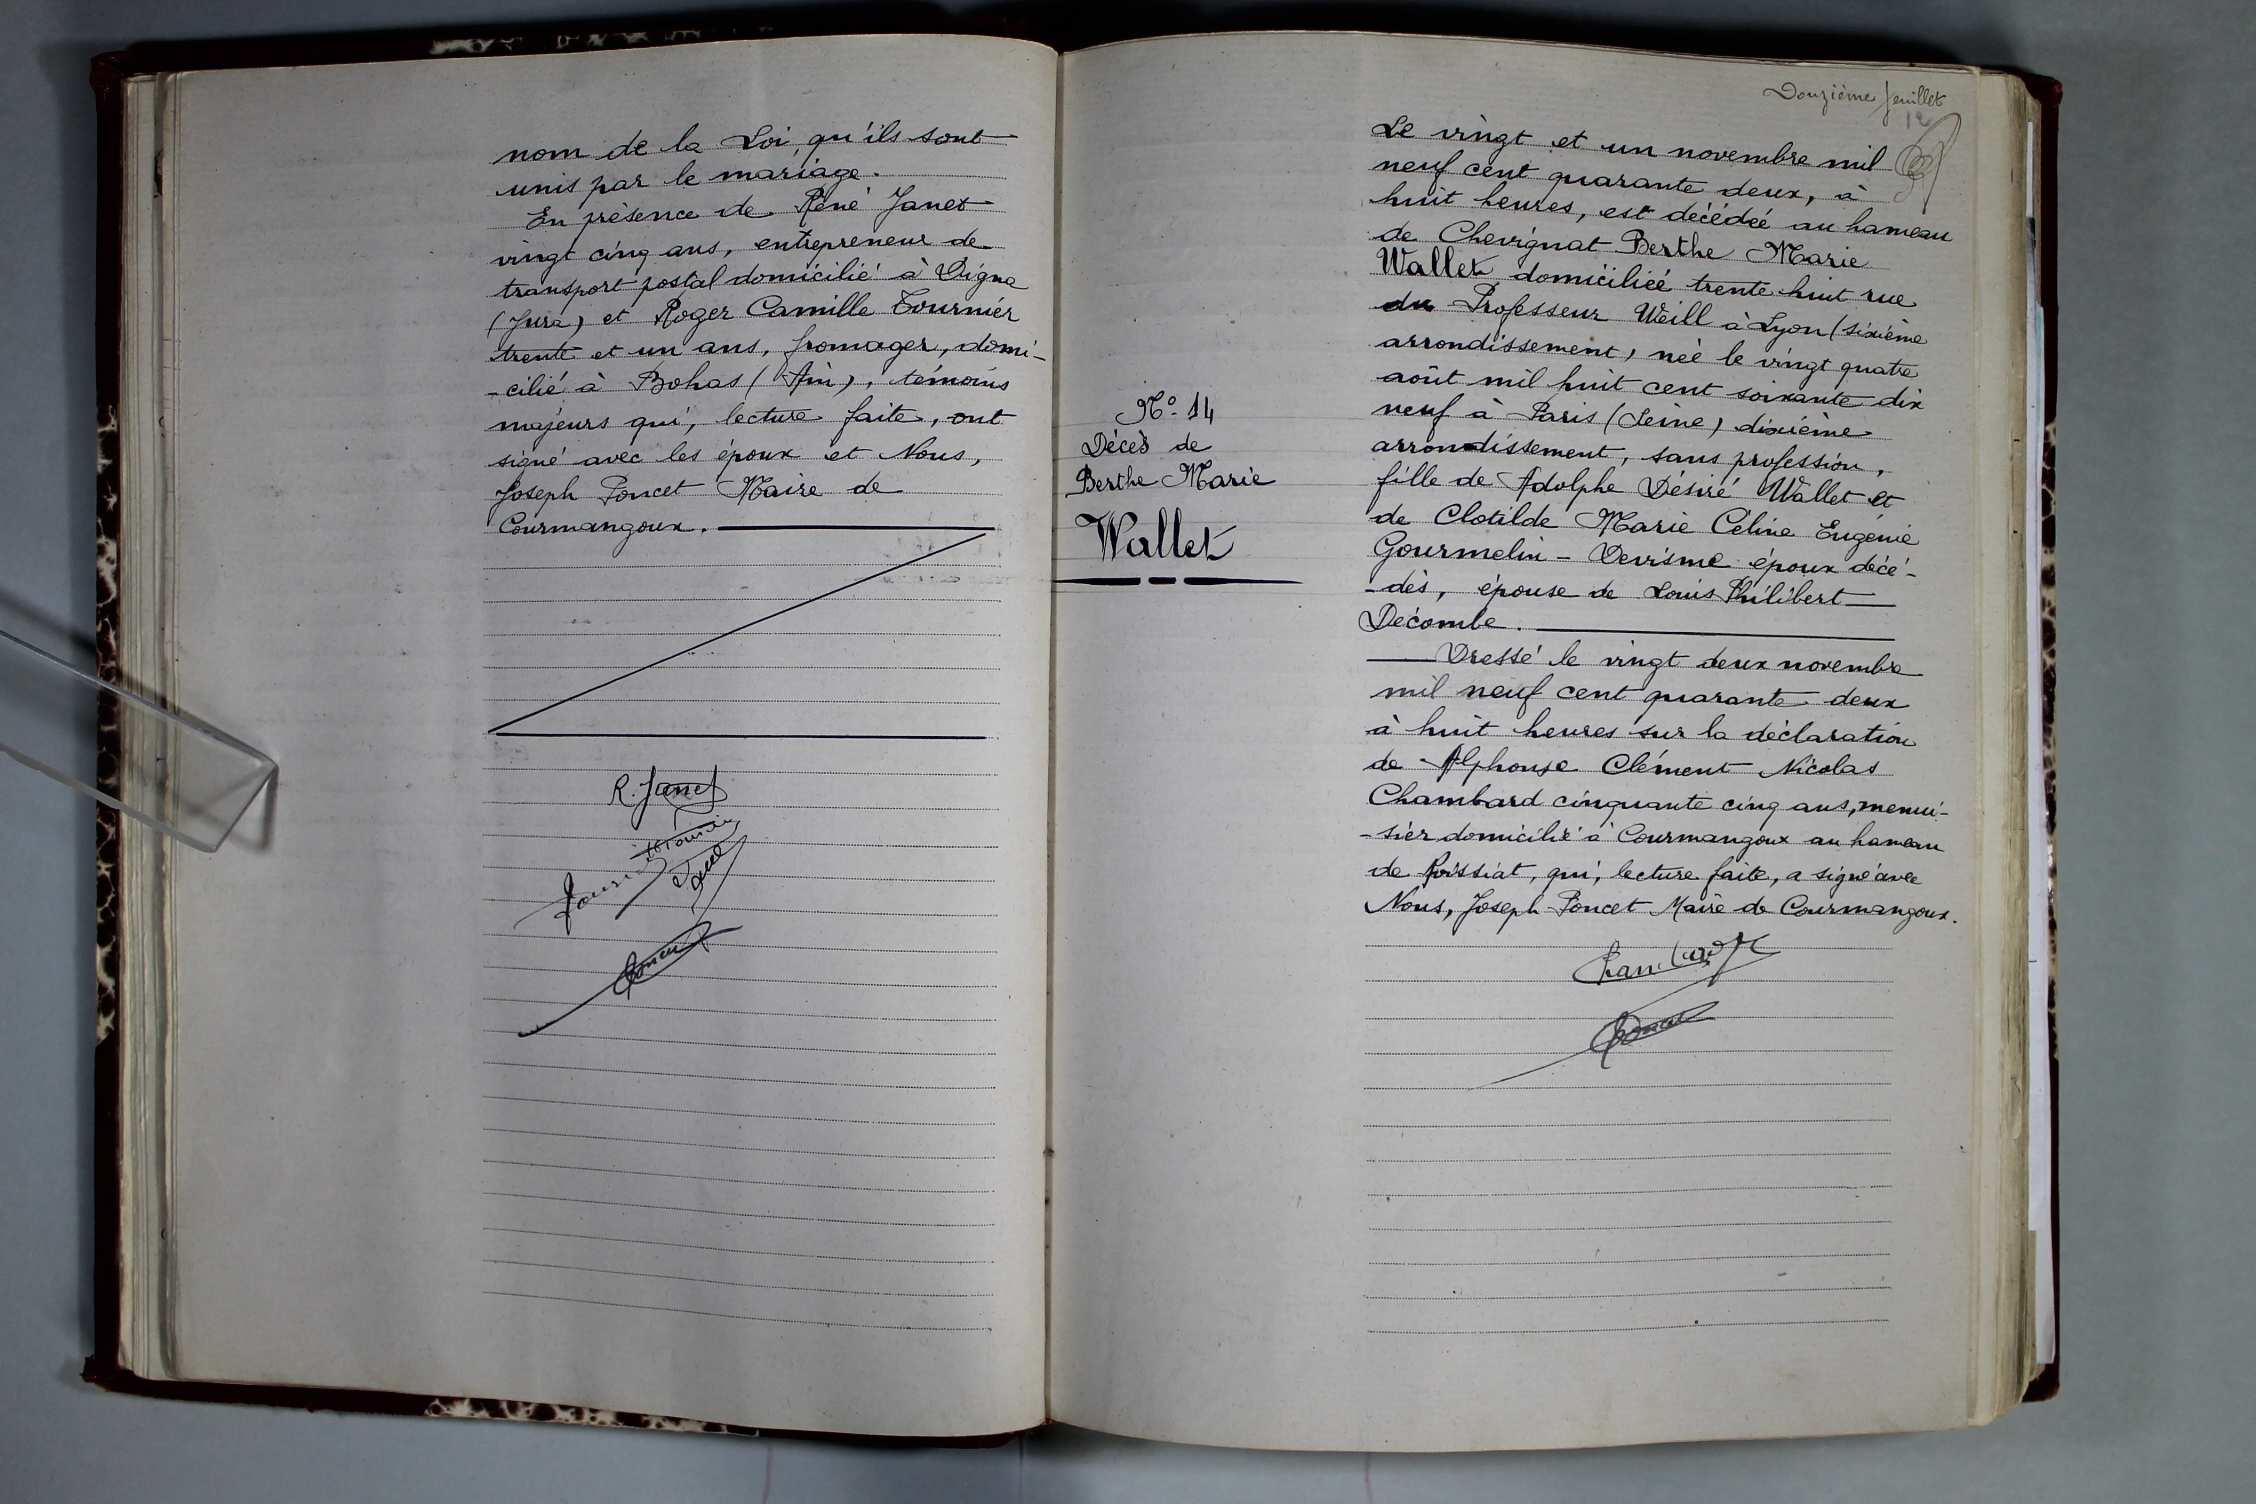 nom de la Loi, qu'ils sont
unis par le mariage.
En présence de René Janet
vingt cinq ans, entrepreneur de
transport postal domicilié à Digna
(Jura) et Roger Camille Tournier
trente et un ans, fromager, domi-
-cilié à Bohas (Ain), témoins
majeurs qui, lecture faite, ont
signé avec les époux et Nous,
Joseph Poncet Maire de
Courmangoux.
R. Janet
Poncet
Douzième feuillet
12
Le vingt et un novembre mil
neuf cent quarante deux, à
huit heures, est décédée au hameau
de Chevignat Berthe Marie
Wallet domiciliée trente huit rue
du Professeur Weill à Lyon (sixième
arrondissement) née le vingt quatre
août mil huit cent soixante dix
neuf à Paris (Seine) dixième
arrondissement, sans profession,
fille de Adolphe Désiré Wallet et
de Clotilde Marie Céline Eugénie
Gourmelin - Devisme époux décé-
-dés, épouse de Louis Philibert
Décombe.
Dressé le vingt deux novembre
mil neuf cent quarante deux
à huit heures sur la déclaration
de Alphonse Clément Nicolas
Chambard cinquante cinq ans, menui-
-sier domicilié à Courmangoux au hameau
de Roissiat, qui, lecture faite, a signé avec
Nous, Joseph Poncet Maire de Courmangoux.
Chambard
Poncet
N° 14
Décès de
Berthe Marie
Wallet